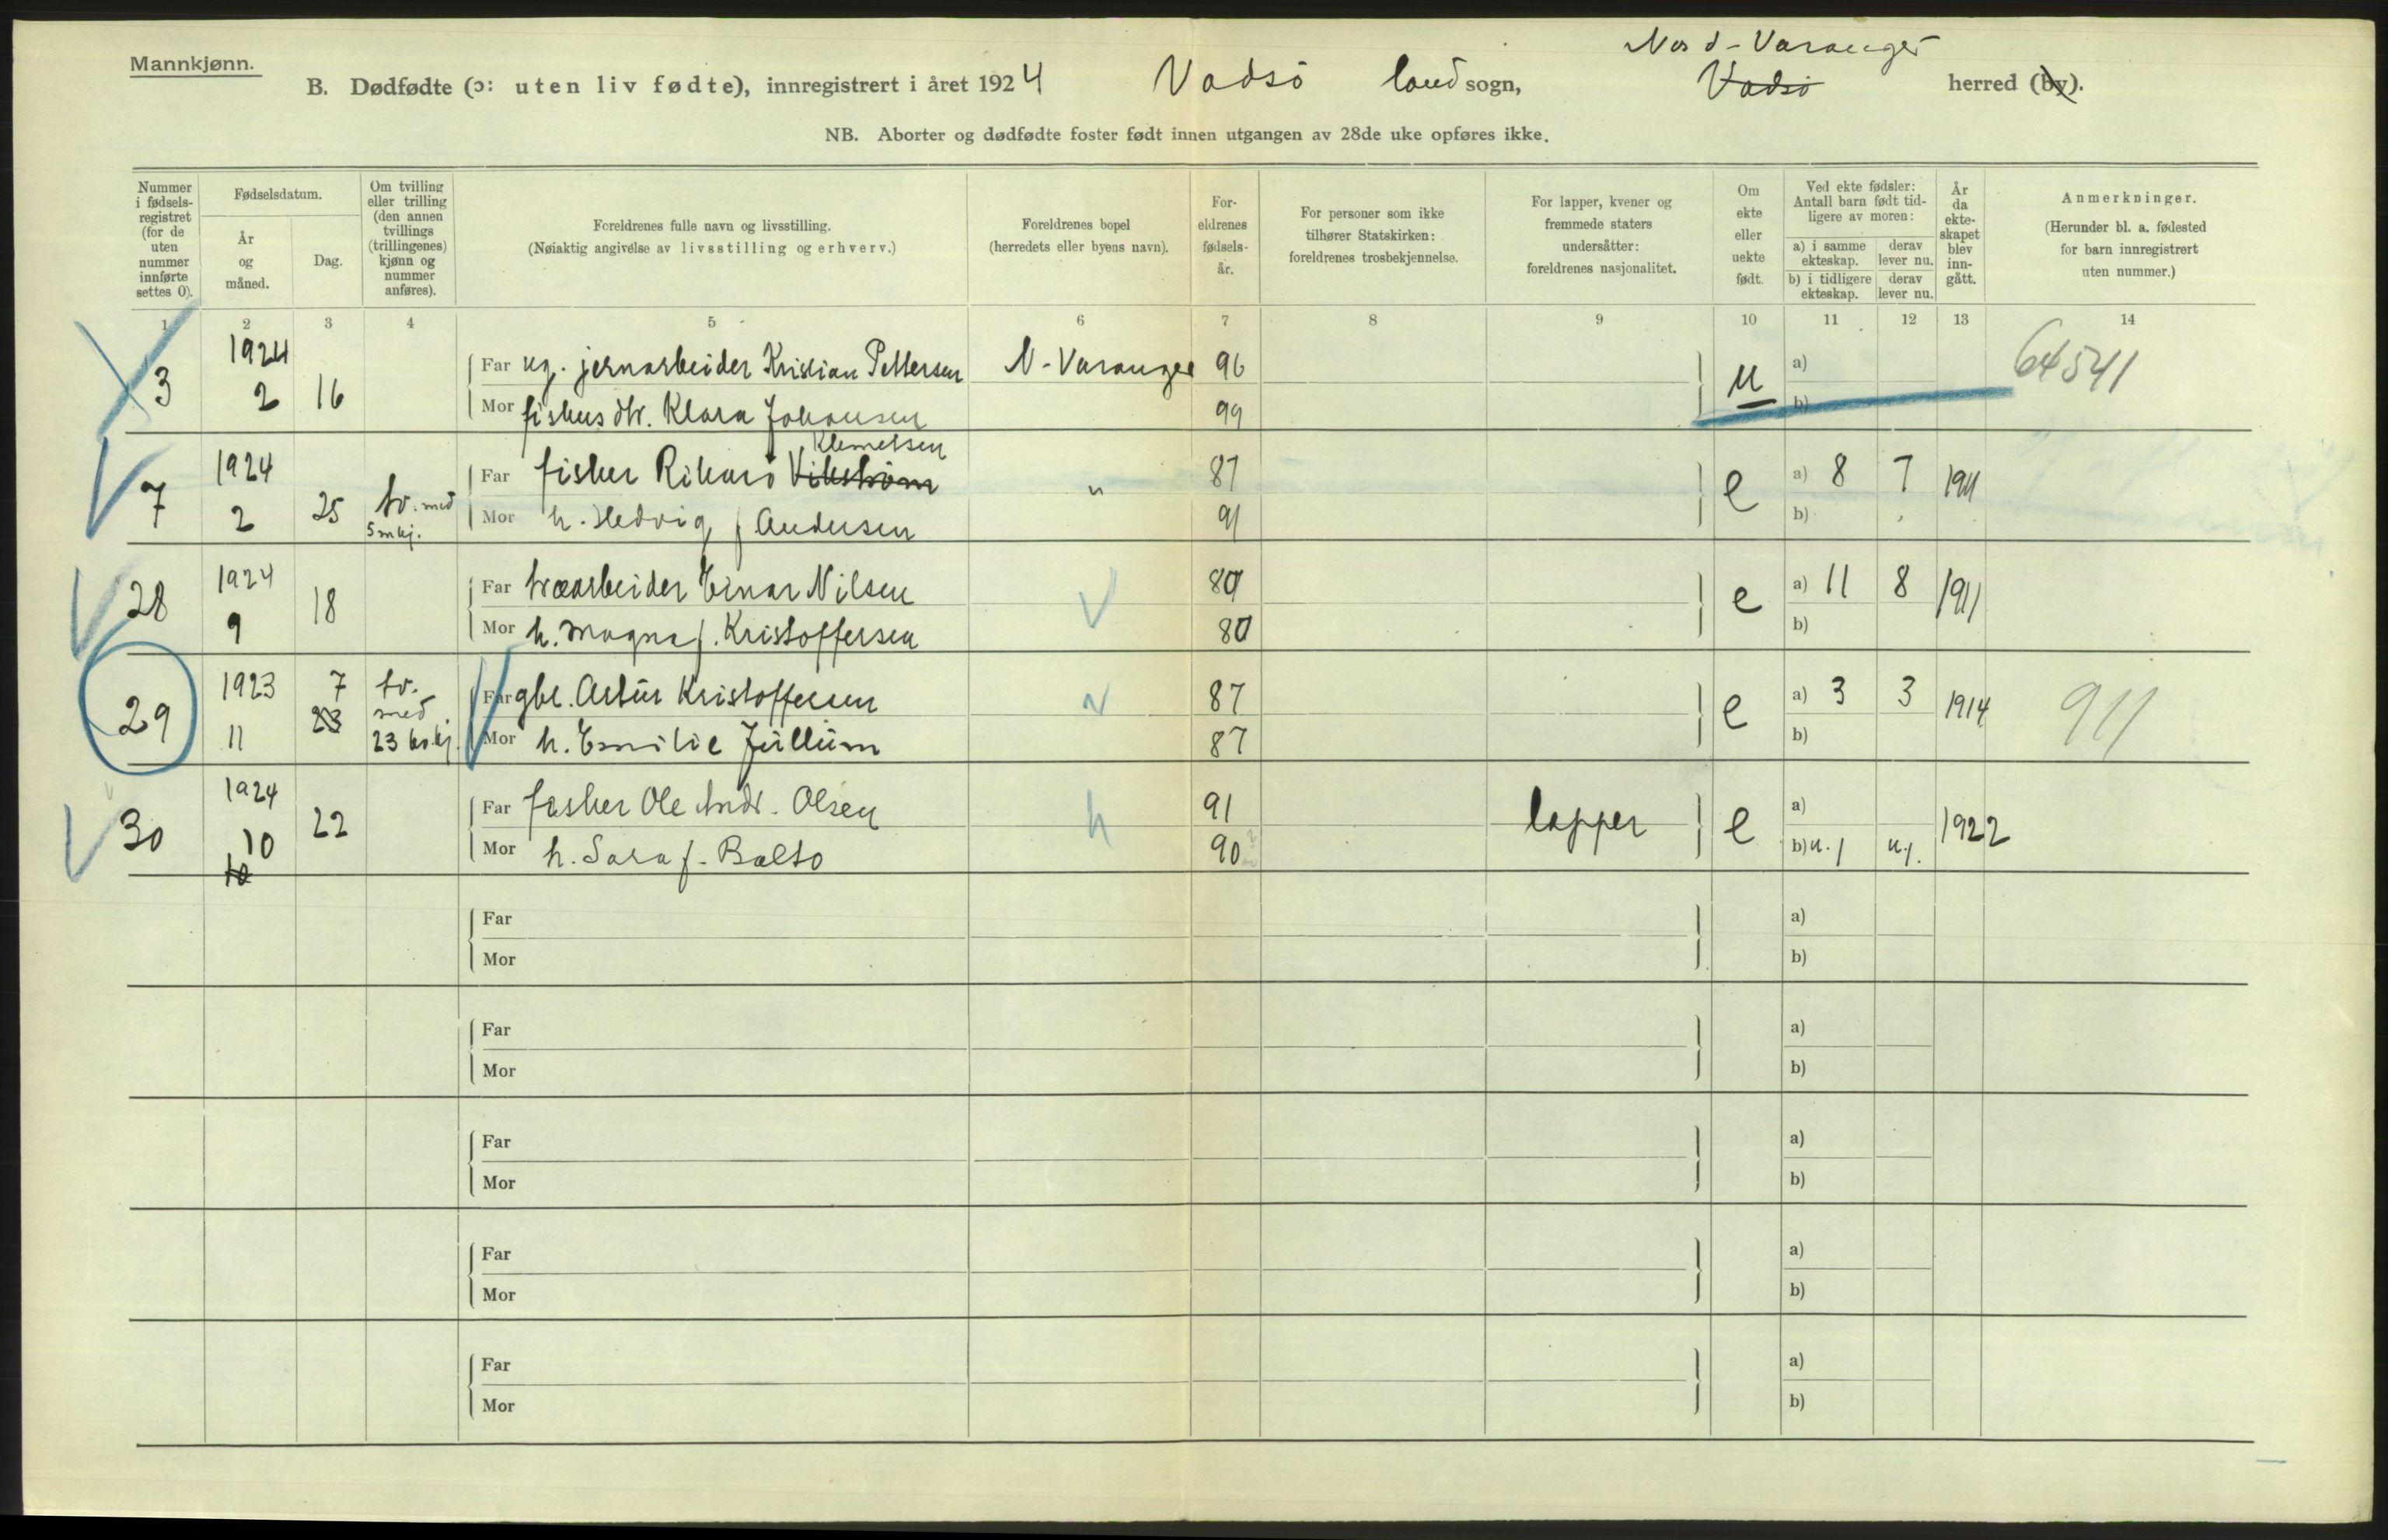 Mannkjønn.
Nord-Varanger
B. Dødfødte (ɔ: uten liv fødte), innregistrert i året 1924 Vadsö land sogn, Vadsö herred (by).
NB. Aborter og dødfødte foster født innen utgangen av 28de uke opføres ikke.
Nummer i fødsels-registret (for de uten nummer innførte settes 0).
Fødselsdatum.
År og måned.
Dag.
Om tvilling eller trilling (den annen tvillings (trillingenes) kjønn og nummer anføres).
Foreldrenes fulle navn og livsstilling.
(Nøiaktig angivelse av livsstilling og erhverv.)
Foreldrenes bopel
(herredets eller byens navn).
For-eldrenes fødsels-år.
For personer som ikke tilhører Statskirken: foreldrenes trosbekjennelse.
For lapper, kvener og fremmede staters undersåtter: foreldrenes nasjonalitet.
Om ekte eller uekte født.
Ved ekte fødsler: Antall barn født tid-ligere av moren:
a) i samme ekteskap.
derav lever nu.
b) i tidligere ekteskap.
derav lever nu.
År da ekte-skapet blev inn-gått.
Anmerkninger.
(Herunder bl. a. fødested for barn innregistrert uten nummer.)
1 2 3 4 5 6 7 8 9 10 11 12 13 14
3 1924 2 16 Far ug. jernarbeider Kristian Pettersen N-Varanger 96 u a) 64541
Mor fiskers dtr. Klara Johansen 99 b)
Klemetsen
7 1924 2 25 tv. med 5 mkj. Far fisker Rikard Vikström " 87 e a) 8 7 1911
Mor h. Hedvig f Andersen 91 b)
28 1924 9 18 Far træarbeider Einar Nilsen 80 e a) 11 8 1911
Mor h. Magna f. Kristoffersen 80 b)
29 1923 11 7 23 tv. med 23 kv.kj. Far gbr. Artur Kristoffersen 87 e a) 3 3 1914 911
Mor h. Emilie Jullum 87 b)
30 1924 10 10 22 Far fisker Ole Andr. Olsen 91 lapper e a) 1922
Mor h. Sara f. Balto 90 b) u. 1 u. 1.
Far a)
Mor b)
Far a)
Mor b)
Far a)
Mor b)
Far a)
Mor b)
Far a)
Mor b)